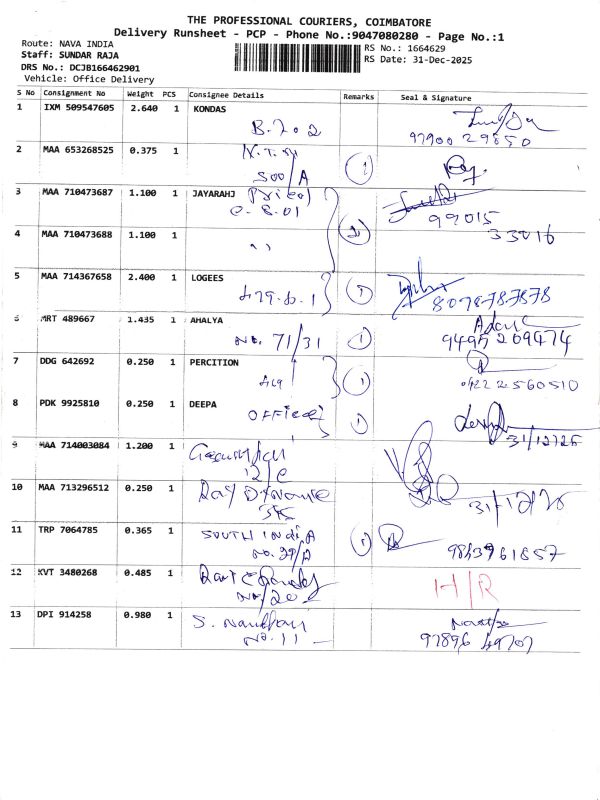 THE PROFESSIONAL COURIERS, COIMBATORE
Delivery Runsheet - PCP - Phone No.:9047080280 - Page No.:1
Route: NAVA INDIA
RS No.: 1664629
Staff: SUNDAR RAJA
RS Date: 31-Dec-2025
DRS No.: DCJB166462901
Vehicle: Office Delivery
S No Consignment No Weight PCS Consignee Details Remarks Seal & Signature
1 IXM 509547605 2.640 1 KONDAS
B.202
97900 29850
2 MAA 653268525 0.375 1
500/A
3 MAA 710473687 1.100 1 JAYARAHJ Pricol
99015
33016
4 MAA 710473688 1.100 1 ''
5 MAA 714367658 2.400 1 LOGEES
479.B.1 1
8078787878
6 MRT 489667 1.435 1 AHALYA
No. 71/31 1
9495209474
7 DDG 642692 0.250 1 PERCITION
419 1
0422 2560510
8 PDK 9925810 0.250 1 DEEPA
1
31/12/25
9 MAA 714003084 1.200 1
12/C
10 MAA 713296512 0.250 1
11 TRP 7064785 0.365 1
SOUTH INDIA 1
No. 39/A
9843961657
12 KVT 3480268 0.485 1
No/20
H/R
13 DPI 914258 0.980 1
No. 11
97896 49707